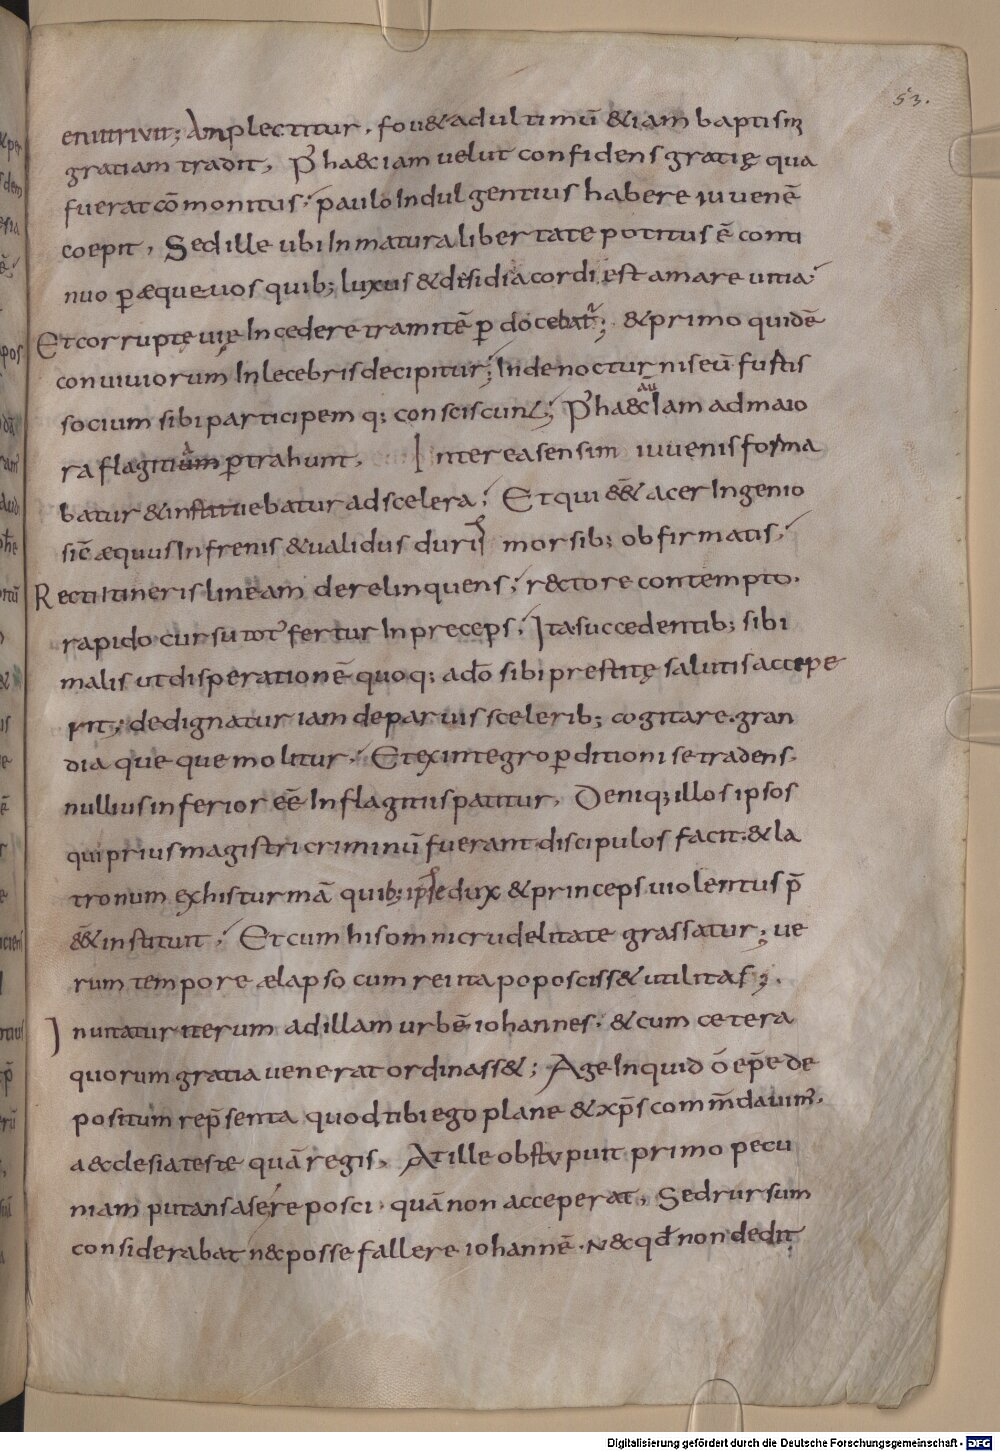 53.
enutrivit; Amplectitur, fou&ad ultimū &iam baptism
gratiam tradit, P̄ ha&c iam uelut confidens gratię qua
fuerat cōmonitus; paulo Indulgentius habere iuuenē
coepit, Sed ille ubi In matura libertate potitus ē conti
nuo p̄ æque uos quib; luxus & desidia cordi est amare uitia;
Et corruptę uię Incedere tramitē p̄ docebat᷑; & primo quidē
conuiuiorum Inlecebris decipitur; Inde nocturnis eū furtis
socium sibi participem q; consciscunt; P̄ ha&c iam ad maio
ra flagitium p̄trahunt, Interea sensim iuuenis forma
batur & instituebatur ad scelera; Et qui e&̄ acer Ingenio
sic̄ æquus Infrenis & ualidus duris morsib; obfirmatis;
Recti Itineris lineam derelinquens; rectore contempto.
rapido cursu tot᾽ fertur In preceps; Ita succedentib; sibi
malis ut disperationē quoq; a dō sibi prestitę salutis accepe
rit; dedignatur iam de paruis scelerib; cogitare. gran
dia queque molitur; Et ex integro p̄ditioni se tradens.
nullius inferior eē In flagitiis patitur, Deniq; illos ipsos
qui prius magistri criminū fuerant discipulos facit. & la
tronum ex his turmā quib; ipse dux & princeps uiolentus p̄
e&̄ instituit; Et cum his omni crudelitate grassatur; ue
rum tempore ælapso cum rei ita poposciss& utilitas;
Inuitatur iterum ad illam urbē iohannes; & cum cetera
quorum gratia uenerat ordinass&; Age Inquid ō ep̄e de
positum rep̄senta quod tibi ego plane & xp̄s com̄mdauim᾽.
a&cclesia teste quā regis, At ille obstvpuit primo pecu
niam putans a se re posci. quā non acceperat, Sed rursum
considerabat n& posse fallere iohannē. N& qđ non dedit
Digitalisierung gefördert durch die Deutsche Forschungsgemeinschaft - DFG